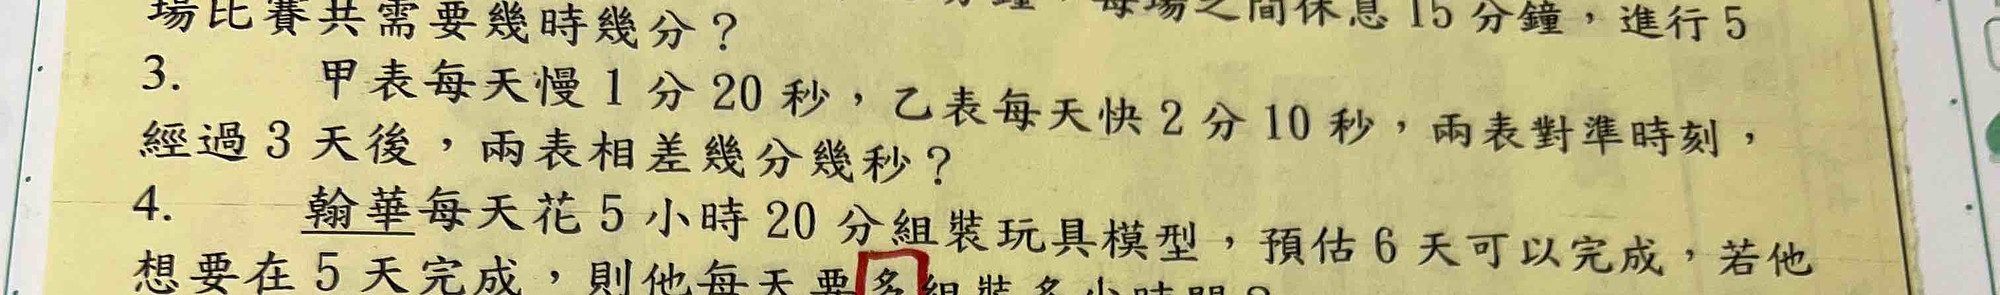 場比賽共需要幾時幾分？
分鐘，每場之間休息15分鐘，進行5
3. 甲表每天慢1分20秒，乙表每天快2分10秒，兩表對準時刻，
經過3天後，兩表相差幾分幾秒？
4. 翰華每天花5小時20分組裝玩具模型，預估6天可以完成，若他
想要在5天完成，則他每天要多組裝多小時間？